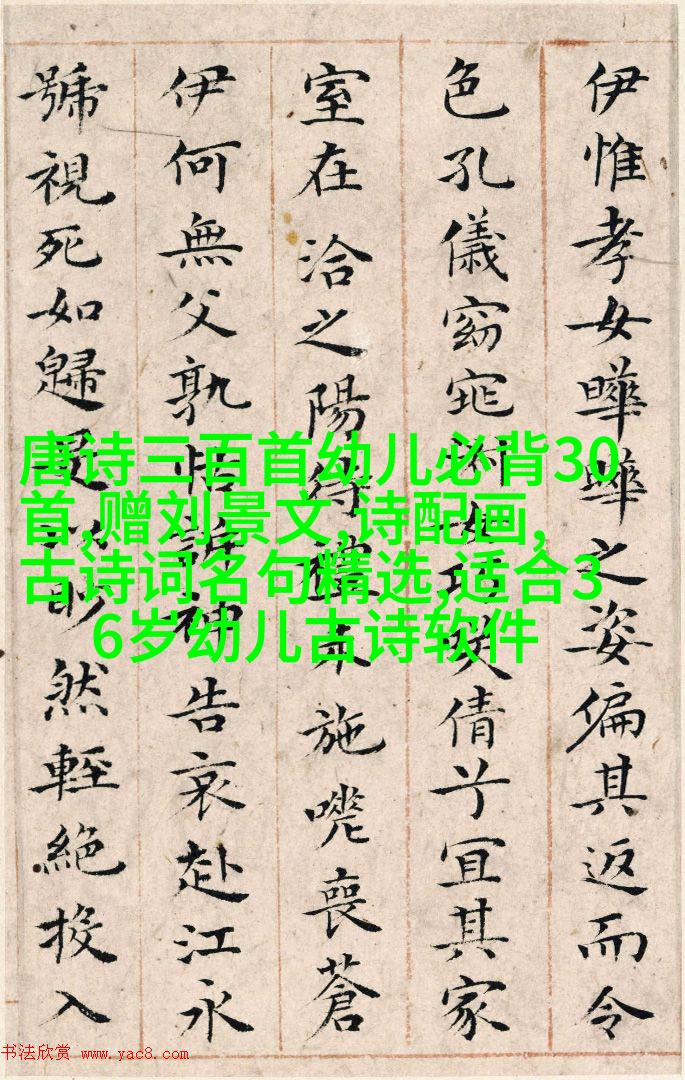 伊惟孝女曄曄之姿偏其返而令
色孔儀窈窕淑女巧笑倩兮宜其家
室在洽之陽待禮未施嗟喪蒼
伊何無父孰怙訴神告哀赴江永
號視死如歸是以眇然輕絕投入
唐诗三百首幼儿必背30
首,赠刘景文,诗配画,
古诗词名句精选,适合3
6岁幼儿古诗软件
书法欣赏 www.yac8.com